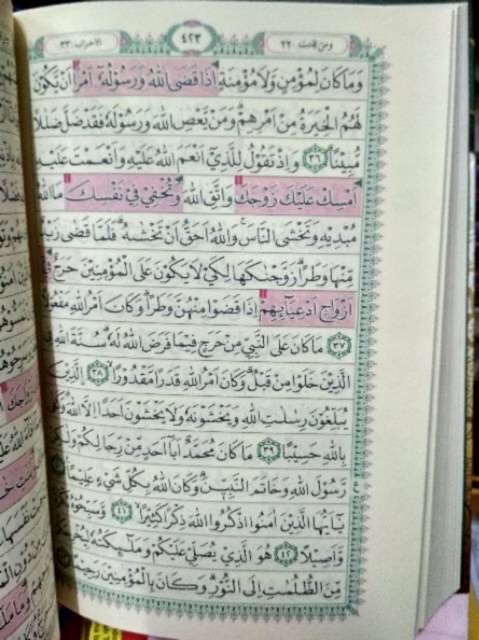 ومن يقنت ٢٢
٤٢٣
الاحزاب ٣٣
وَمَا كَانَ لِمُؤْمِنٍ وَّلَا مُؤْمِنَةٍ اِذَا قَضَى اللّٰهُ وَرَسُوْلُهٗٓ اَمْرًا اَنْ يَّكُوْنَ
لَهُمُ الْخِيَرَةُ مِنْ اَمْرِهِمْ ۗ وَمَنْ يَّعْصِ اللّٰهَ وَرَسُوْلَهٗ فَقَدْ ضَلَّ ضَلٰلًا
مُّبِيْنًا ﴿٣٦﴾ وَاِذْ تَقُوْلُ لِلَّذِيْٓ اَنْعَمَ اللّٰهُ عَلَيْهِ وَاَنْعَمْتَ عَلَيْهِ
اَمْسِكْ عَلَيْكَ زَوْجَكَ وَاتَّقِ اللّٰهَ وَتُخْفِيْ فِيْ نَفْسِكَ مَا اللّٰهُ
مُبْدِيْهِ وَتَخْشَى النَّاسَ ۚ وَاللّٰهُ اَحَقُّ اَنْ تَخْشٰىهُ ۗ فَلَمَّا قَضٰى زَيْدٌ
مِّنْهَا وَطَرًا ۗ زَوَّجْنٰكَهَا لِكَيْ لَا يَكُوْنَ عَلَى الْمُؤْمِنِيْنَ حَرَجٌ فِيْٓ
اَزْوَاجِ اَدْعِيَاۤىِٕهِمْ اِذَا قَضَوْا مِنْهُنَّ وَطَرًا ۗ وَكَانَ اَمْرُ اللّٰهِ مَفْعُوْلًا
﴿٣٧﴾ مَا كَانَ عَلَى النَّبِيِّ مِنْ حَرَجٍ فِيْمَا فَرَضَ اللّٰهُ لَهٗ ۗ سُنَّةَ اللّٰهِ فِى
الَّذِيْنَ خَلَوْا مِنْ قَبْلُ ۗ وَكَانَ اَمْرُ اللّٰهِ قَدَرًا مَّقْدُوْرًا ﴿٣٨﴾ الَّذِيْنَ
يُبَلِّغُوْنَ رِسٰلٰتِ اللّٰهِ وَيَخْشَوْنَهٗ وَلَا يَخْشَوْنَ اَحَدًا اِلَّا اللّٰهَ ۗ وَكَفٰى
بِاللّٰهِ حَسِيْبًا ﴿٣٩﴾ مَا كَانَ مُحَمَّدٌ اَبَآ اَحَدٍ مِّنْ رِّجَالِكُمْ وَلٰكِنْ
رَّسُوْلَ اللّٰهِ وَخَاتَمَ النَّبِيّٖنَ ۗ وَكَانَ اللّٰهُ بِكُلِّ شَيْءٍ عَلِيْمًا
يٰٓاَيُّهَا الَّذِيْنَ اٰمَنُوا اذْكُرُوا اللّٰهَ ذِكْرًا كَثِيْرًا ﴿٤١﴾ وَسَبِّحُوْهُ بُكْرَةً
وَّاَصِيْلًا ﴿٤٢﴾ هُوَ الَّذِيْ يُصَلِّيْ عَلَيْكُمْ وَمَلٰۤىِٕكَتُهٗ لِيُخْرِجَكُمْ
مِّنَ الظُّلُمٰتِ اِلَى النُّوْرِ ۗ وَكَانَ بِالْمُؤْمِنِيْنَ رَحِيْمًا